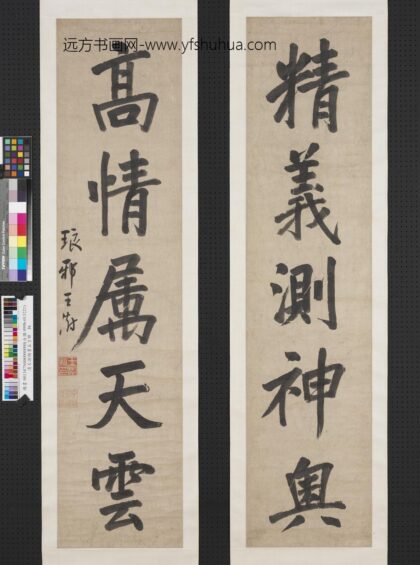 远方书画网-www.yfshuhua.com
精義測神奥
高情属天雲
琅邪王澍